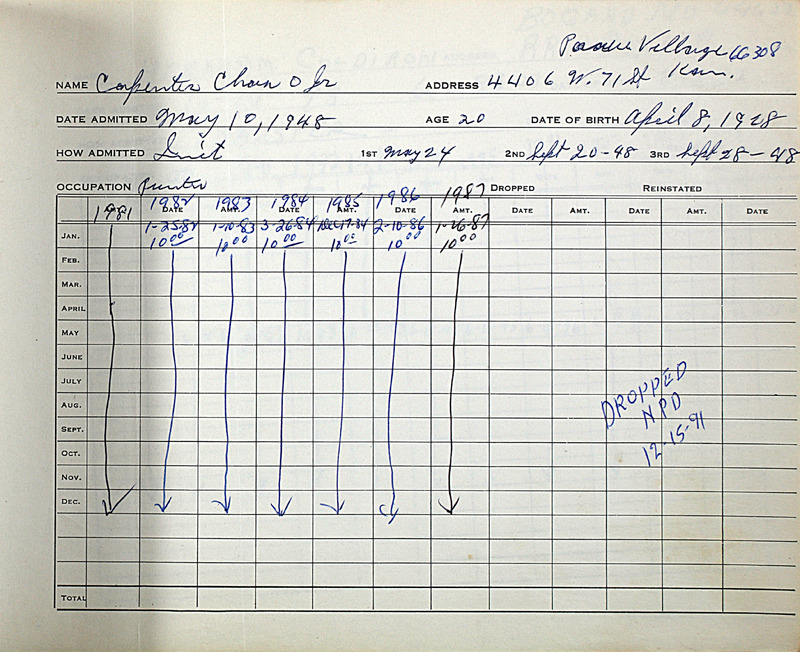 Village 66308
NAME Carpenter Chan O Jr ADDRESS 4406 W. 71 St Kan.
DATE ADMITTED May 10, 1948 AGE 20 DATE OF BIRTH April 8, 1928
HOW ADMITTED Init 1ST May 24 2ND Sept 20-48 3RD Sept 28-48
OCCUPATION Printer DROPPED REINSTATED
1981 1982 DATE 1983 AMT. 1984 DATE 1985 AMT. 1986 DATE 1987 AMT. DATE AMT. DATE AMT. DATE
JAN. 1-25-82 1-10-83 3-26-84 Dec-17-84 2-10-86 1-26-87
10 00 10 00 10 00 10 00 10 00 10 00
FEB.
MAR.
APRIL
MAY
JUNE
JULY
AUG.
SEPT.
OCT.
NOV.
DEC.
DROPPED
NPD
12-15-91
TOTAL